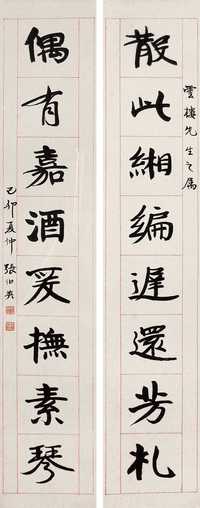 雲樓先生之屬
散此緗編遲還芳札
偶有嘉酒爰撫素琴
己卯夏仲張伯英